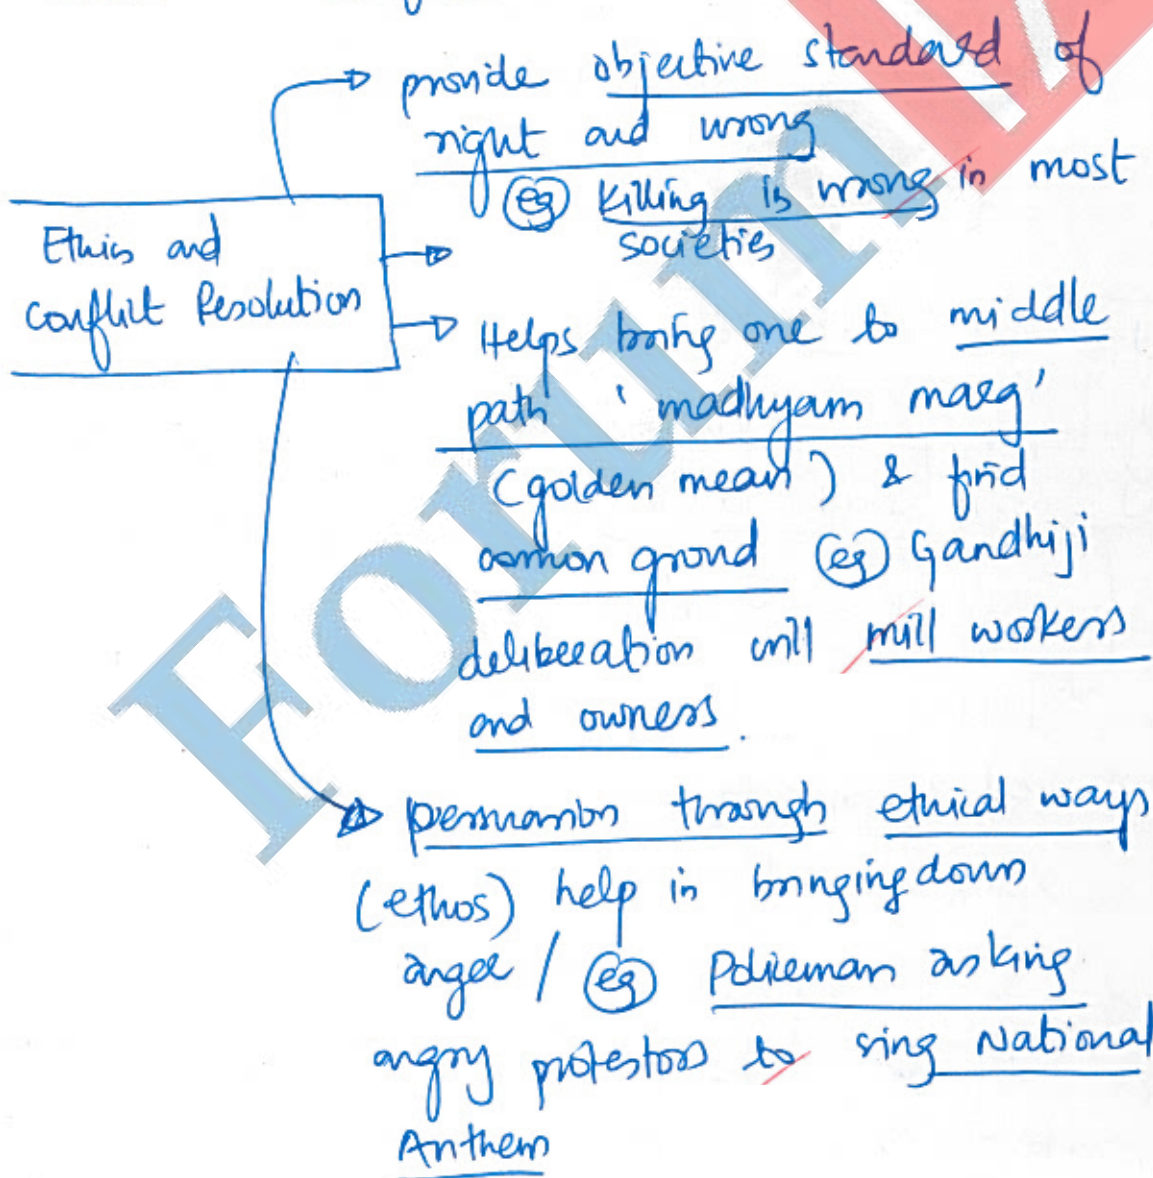 provide objective standard of
right and wrong
eg Killing is wrong in most
societies
Ethics and
Conflict Resolution
Helps bring one to middle
path 'madhyam marg'
(golden mean) & find
common ground eg Gandhiji
deliberation will mill workers
and owners.
persuasion through ethical ways
(ethos) help in bringing down
anger / eg Policeman asking
angry protestors to sing National
Anthem
Forum